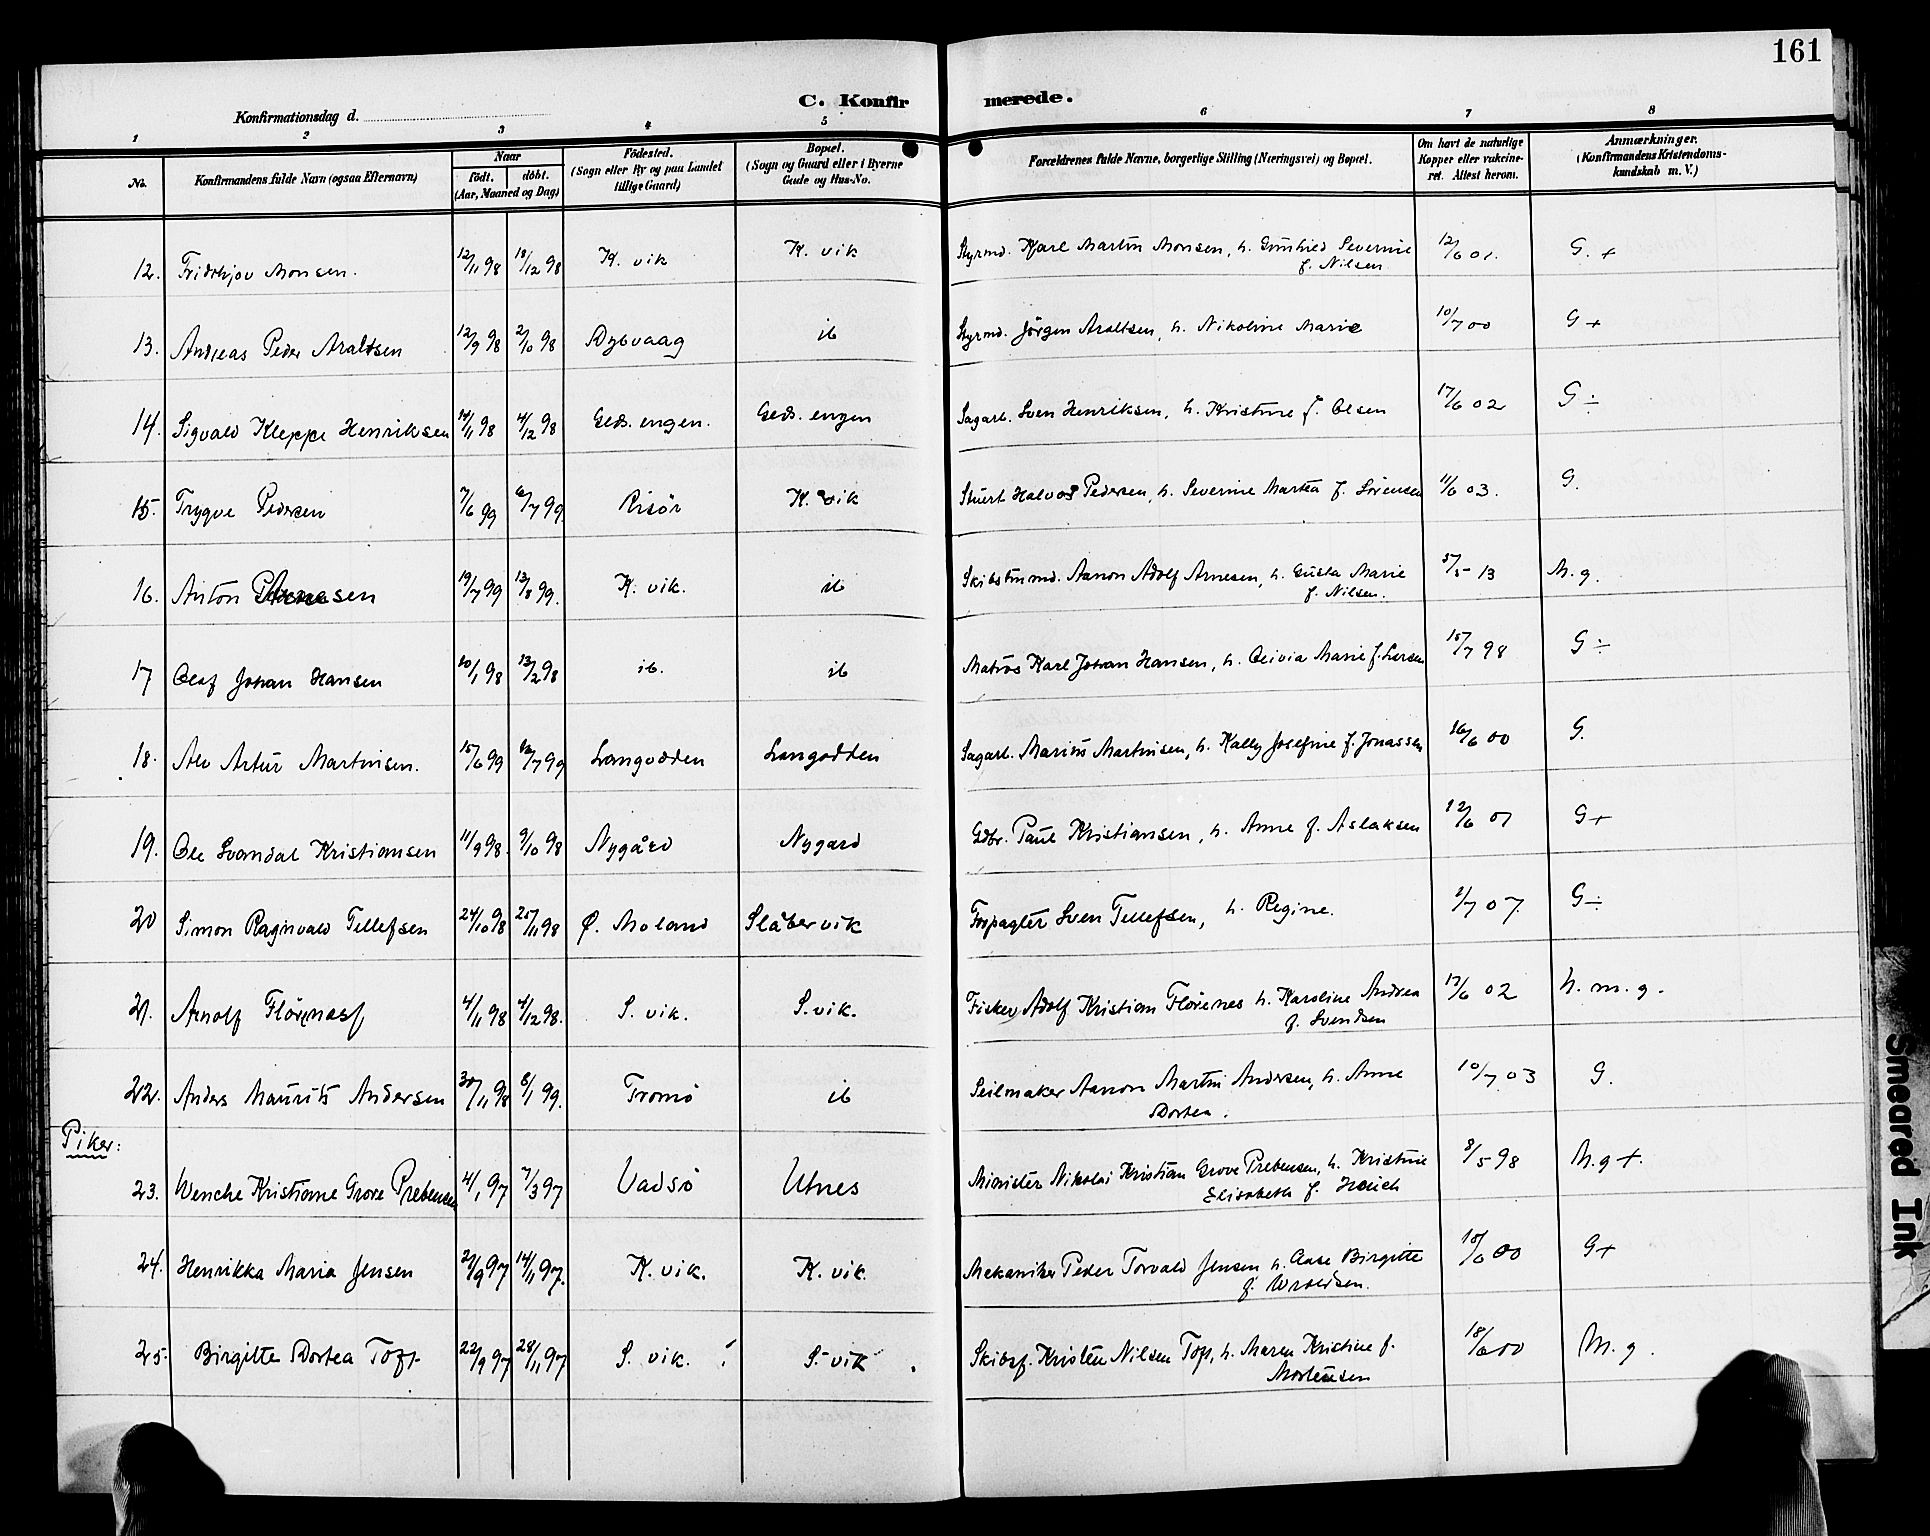 161
C. Konfirmerede.
Konfirmationsdag d.
1 2 3 4 5 6 7 8
No. Konfirmandens fulde Navn (ogsaa Efternavn) Naar født. døbt. (Aar, Maaned og Dag) Fødested. (Sogn eller By og paa Landet tillige Gaard) Bopæl. (Sogn og Gaard eller i Byerne Gade og Hus-No. Forældrenes fulde Navne, borgerlige Stilling (Næringsvei) og Bopæl. Om havt de naturlige Kopper eller vakcineret. Attest herom. Anmærkninger. (Konfirmandens Kristendomskundskab m. V.)
12. Fridthjov Monsen. 12/11 98 18/12 98 K. vik K. vik Styrmd. Karl Martin Monsen, h. Gunhild Severine f. Nilsen 12/6 01. G. +
13. Andreas Peder Araltsen 12/9 98 2/10 98 Dybvaag ib Styrmd. Jörgen Araltsen, h. Nikoline Marie 10/7 00 G +
14. Sigvald Kleppe Henriksen 14/11 98 4/12 98 Geds. engen. Geds. engen Sagarb. Sven Henriksen, h. Kristine f. Olsen 17/6 02 G ÷
15. Trygve Pedersen 7/6 99 6/7 99 Risör K. vik Stuert Halvor Pedersen, h. Severine Martea f. Sörensen 11/6 03. G.
16. Anton Arnesen 19/7 99 13/8 99. K. vik. ib Skibstmmd. Aanon Adolf Arnesen, h. Gusta Marie f. Nilsen. 5/5 13 M. g.
17 Olaf Johan Hansen 10/1 98 13/2 98 ib. ib Matros Karl Johan Hansen, h. Olivia Marie f. Larsen 15/7 98 G ÷
18. Alv Artur Martinsen. 15/6 99 /7 99 Langodden Langodden Sagarb. Marius Martinsen, h. Kally Josefine f. Jonassen 16/6 00 G.
19. Ole Svandal Kristiansen 11/9 98. 9/10 98 Nygård Nygard Gdbr. Paul Kristiansen, h. Anne f. Aslaksen 12/6 01 G +
20 Simon Ragnvald Tellefsen 24/10 98 25/11 98 Ø. Moland Slåbervik Forpagter Sven Tellefsen, h. Regine. 2/7 07. G ÷
21. Arnolf Flörenæs 4/11 98 4/12 98. S. vik. S. vik. Fisker Adolf Kristian Flörenes h. Karoline Andrea f. Svendsen 17/6 02 h. m. g.
22. Anders Maurits Andersen 30/11 98 8/1 99. Tromö ib Seilmaker Aanon Martin Andersen, h. Anne Dortea. 10/7 03 G.
Piker:
23. Wenche Kristiane Grove Prebensen 4/1 97 7/3 97 Vadsö Utnes Minister Nikolai Kristian Grove Prebensen, h. Kristine Elisabeth f. Hauch 8/5 98 M. g +.
24. Henrikka Maria Jensen 21/9 97 14/11 97. K. vik. K. vik. Mekaniker Peder Torvald Jensen h. Aase Birgitte f. 18/6 00 G +
25. Birgitte Dortea Toft 22/9 97 28/11 97 S. vik. S. vik. Skibsf. Kristen Nilsen Toft, h. Maren Kristine f. Mortensen 18/6 00 M. g.
Smeared Ink